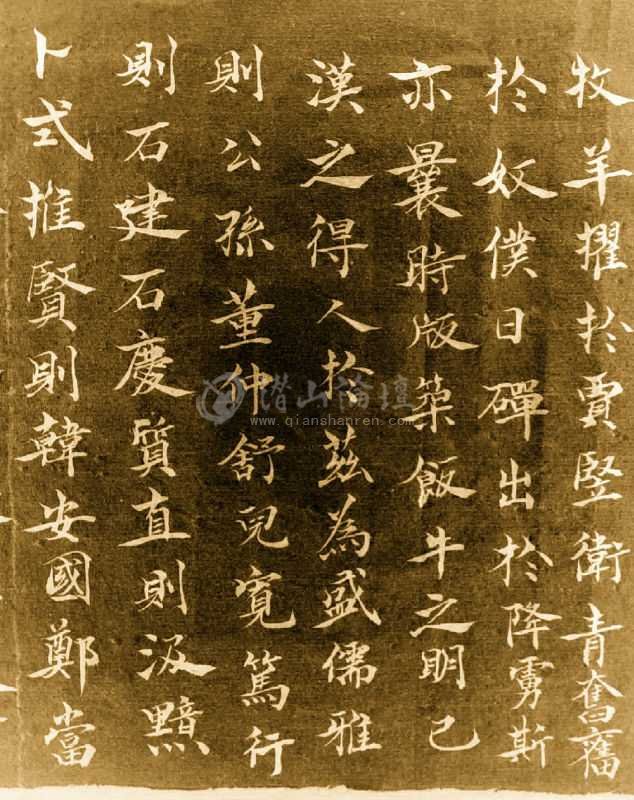 牧羊擢於賈豎衛青奮
於奴僕日磾出於降虜斯
亦曩時版築飯牛之明已
漢之得人於茲為盛儒雅
則公孫董仲舒兒寬篤行
則石建石慶質直則汲黯
卜式推賢則韓安國鄭當
潜山论坛
www.qianshanren.com